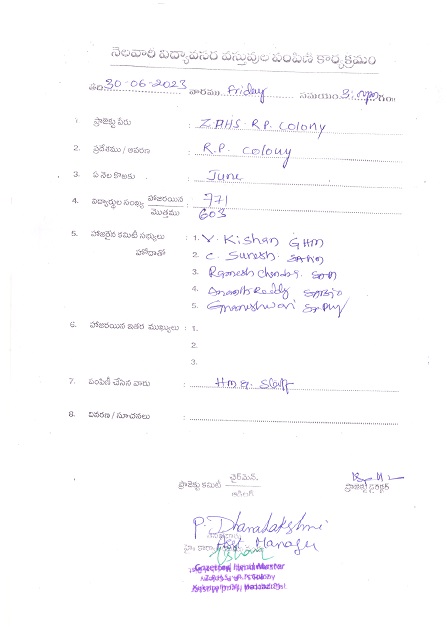 నెలవారి విద్యావసర వస్తువుల పంపిణీ కార్యక్రమం
తేది:30-06-2023 వారము Friday సమయం 3:
1. ప్రాజెక్టు పేరు : ZPHS. R.P. Colony
2. ప్రదేశము / ఆవరణ : R.P. Colony
3. ఏ నెల కొఱకు : June
4. విద్యార్థుల సంఖ్య హాజరయిన / మొత్తము : 771 / 603
5. హాజరైన కమిటీ సభ్యులు : 1. V. Kishan GHM
హోదాతో 2. C. Suresh
3. Ramesh Chandra.
4. Ananth Reddy
5. Gnaneshwari
6. హాజరయిన ఇతర ముఖ్యులు : 1.
2.
3.
7. పంపిణీ చేసిన వారు : HM & Staff
8. వివరణ / సూచనలు :
ప్రాజెక్టు కమిటీ చైర్మెన్
ప్రాజెక్టు డైరెక్టర్
P. Dhanalakshmi
Asst. Manager
Gazetted Head Master